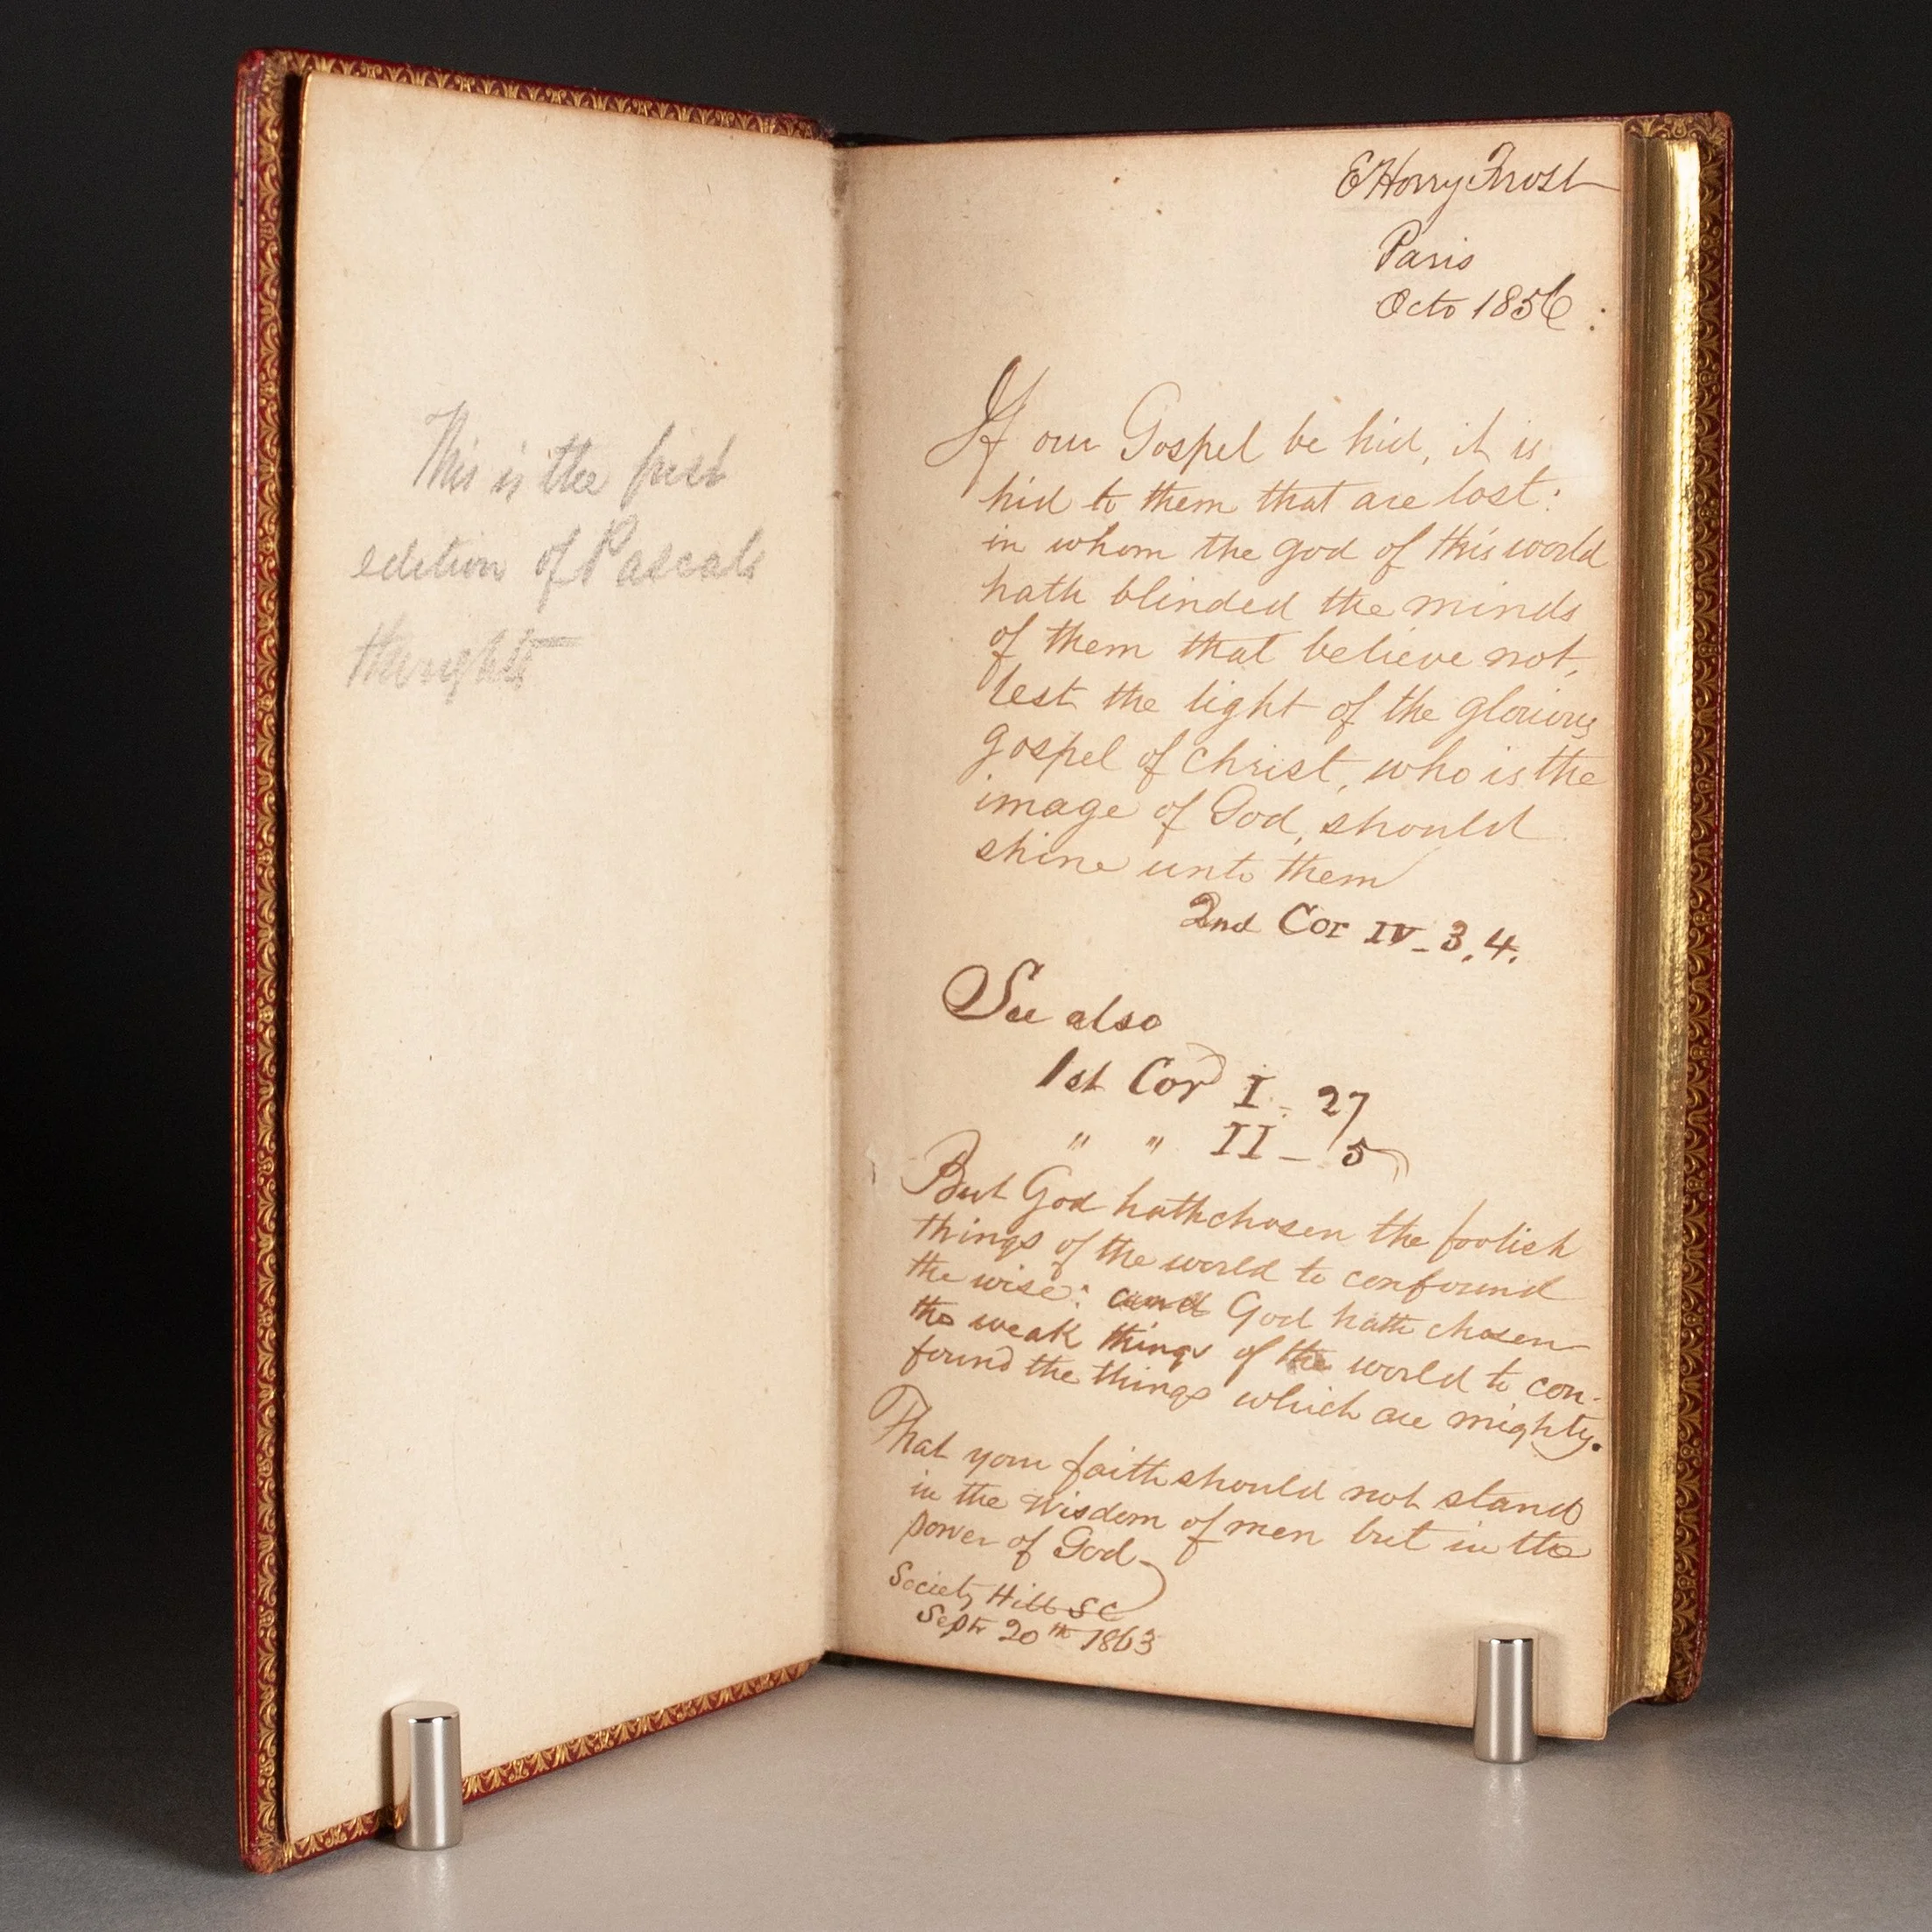 This is the first
edition of Pascals
thoughts
E Horry Frost
Paris
Octo 1856 :
If our Gospel be hid, it is
hid to them that are lost:
in whom the god of this world
hath blinded the minds
of them that believe not,
lest the light of the glorious
gospel of Christ, who is the
image of God, should
shine unto them
2nd Cor IV - 3, 4.
See also
1st Cor I - 27
" " II - 5
But God hath chosen the foolish
things of the world to confound
the wise: and God hath chosen
the weak things of the world to con-
found the things which are mighty.
That your faith should not stand
in the wisdom of men but in the
power of God
Society Hill SC
Septr 20th 1863